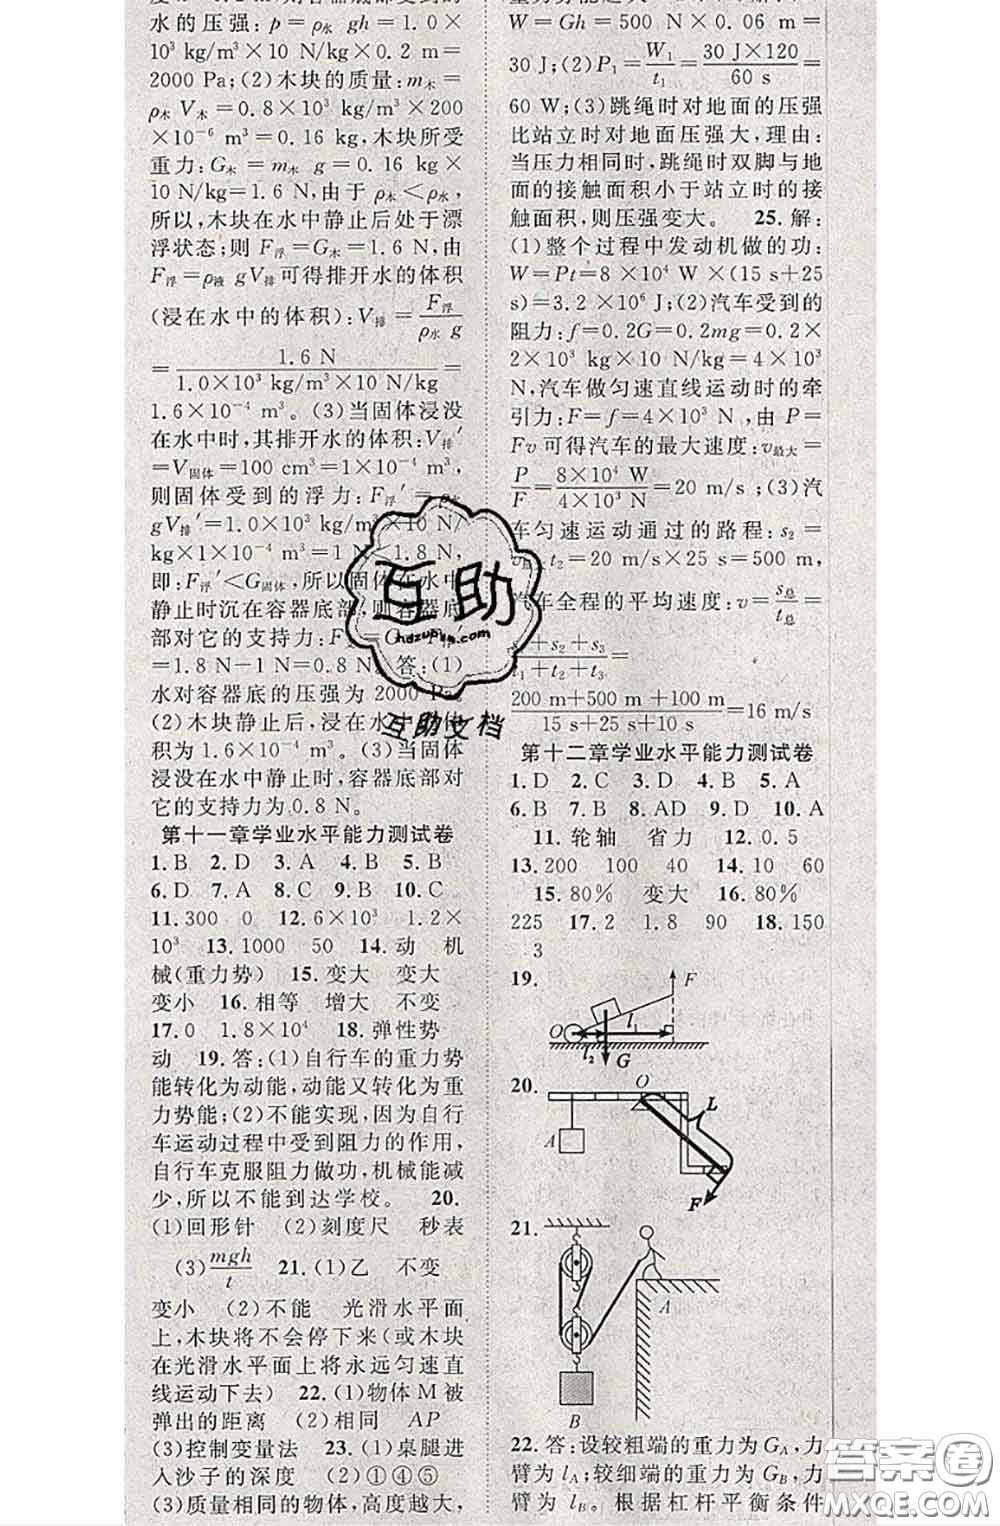 水的压强:p=ρ水 gh=1.0×
10³ kg/m³×10 N/kg×0.2 m=
2000 Pa;(2)木块的质量:m木=
ρ木 V木=0.8×10³ kg/m³×200
×10⁻⁶ m³=0.16 kg,木块所受
重力:G木=m木 g=0.16 kg×
10 N/kg=1.6 N,由于 ρ木<ρ水,
所以,木块在水中静止后处于漂
浮状态;则 F浮=G木=1.6 N,由
F浮=ρ液 gV排可得排开水的体积
(浸在水中的体积):V排=F浮/ρ水 g
=1.6 N/1.0×10³ kg/m³×10 N/kg=
1.6×10⁻⁴ m³。(3)当固体浸没
在水中时,其排开水的体积:V排′
=V固体=100 cm³=1×10⁻⁴ m³,
则固体受到的浮力:F浮′=ρ水
gV排′=1.0×10³ kg/m³×10 N/
kg×1×10⁻⁴ m³=1 N<1.8 N,
即:F浮′<G固体,所以固体在水中
静止时沉在容器底部,则容器底
部对它的支持力:F
=1.8 N-1 N=0.8 N。答:(1)
水对容器底的压强为 2000 Pa。
(2)木块静止后,浸在水中的体
积为 1.6×10⁻⁴ m³。(3)当固体
浸没在水中静止时,容器底部对
它的支持力为 0.8 N。
第十一章学业水平能力测试卷
1.B 2.D 3.A 4.B 5.B
6.D 7.A 8.C 9.B 10.C
11.300 0 12.6×10³ 1.2×
10³ 13.1000 50 14.动 机
械(重力势) 15.变大 变大
变小 16.相等 增大 不变
17.0 1.8×10⁴ 18.弹性势
动 19.答:(1)自行车的重力势
能转化为动能,动能又转化为重
力势能;(2)不能实现,因为自行
车运动过程中受到阻力的作用,
自行车克服阻力做功,机械能减
少,所以不能到达学校。 20.
(1)回形针 (2)刻度尺 秒表
(3)mgh/t 21.(1)乙 不变
变小 (2)不能 光滑水平面
上,木块将不会停下来(或木块
在光滑水平面上将永远匀速直
线运动下去) 22.(1)物体 M 被
弹出的距离 (2)相同 AP
(3)控制变量法 23.(1)桌腿进
入沙子的深度 (2)①④⑤
(3)质量相同的物体,高度越大,
W=Gh=500 N×0.06 m=
30 J;(2)P₁=W₁/t₁=30 J×120/60 s=
60 W;(3)跳绳时对地面的压强
比站立时对地面压强大,理由:
当压力相同时,跳绳时双脚与地
面的接触面积小于站立时的接
触面积,则压强变大。 25.解:
(1)整个过程中发动机做的功:
W=Pt=8×10⁴ W×(15 s+25
s)=3.2×10⁶ J;(2)汽车受到的
阻力:f=0.2G=0.2mg=0.2×
2×10³ kg×10 N/kg=4×10³
N,汽车做匀速直线运动时的牵
引力:F=f=4×10³ N,由 P=
Fv 可得汽车的最大速度:v最大=
P/F=8×10⁴ W/4×10³ N=20 m/s;(3)汽
车匀速运动通过的路程:s₂=
v最大t₂=20 m/s×25 s=500 m,
汽车全程的平均速度:v=s总/t总
=s₁+s₂+s₃/t₁+t₂+t₃=
200 m+500 m+100 m/15 s+25 s+10 s=16 m/s
第十二章学业水平能力测试卷
1.D 2.C 3.D 4.B 5.A
6.B 7.B 8.AD 9.D 10.A
11.轮轴 省力 12.0.5
13.200 100 40 14.10 60
15.80% 变大 16.80%
225 17.2 1.8 90 18.150
3
19.
F
O l₁ l₂ G
20.
O L A F
21.
A
B
22.答:设较粗端的重力为 G_A,力
臂为 l_A;较细端的重力为 G_B,力
臂为 l_B。根据杠杆平衡条件
互助
hdzuoye.com
互助文档
答案圈
MXQE.COM